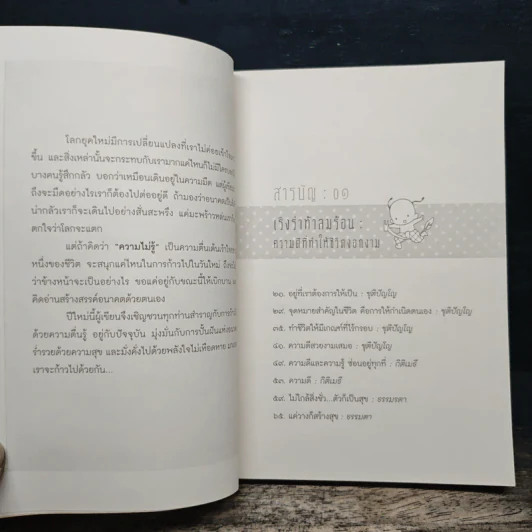 โลกยุคใหม่มีการเปลี่ยนแปลงที่เราไม่ค่อยเข้าใจมาก
ขึ้น และสิ่งเหล่านั้นจะกระทบกับเรามากแค่ไหนก็ไม่มีใคร
บางคนรู้สึกกลัว บอกว่าเหมือนเดินอยู่ในความมืด แต่ผู้เขียน
ถึงจะมืดอย่างไรเราก็ต้องไปต่ออยู่ดี ถ้ามองว่าอนาคตเป็น
น่ากลัวเราก็จะเดินไปอย่างสั่นสะพรึง แค่มะพร้าวหล่น
ตกใจว่าโลกจะแตก
แต่ถ้าคิดว่า "ความไม่รู้" เป็นความตื่นเต้นเร้าใจ
หนึ่งของชีวิต จะสนุกแค่ไหนในการก้าวไปในวันใหม่
ว่าข้างหน้าจะเป็นอย่างไร ขอแค่อยู่กับขณะนี้ให้เบิกบาน
คิดอ่านสร้างสรรค์อนาคตด้วยตนเอง
ปีใหม่นี้ผู้เขียนจึงเชิญชวนทุกท่านสำราญกับการ
ด้วยความตื่นรู้ อยู่กับปัจจุบัน มุ่งมั่นกับการปั้นฝันแห่ง
ร่ำรวยด้วยความสุข และมั่งคั่งไปด้วยพลังใจไม่เหือดหาย
เราจะก้าวไปด้วยกัน...
สารบัญ : ๐๑
เริงร่าท้าลมร้อน :
ความดีที่ทำให้ชีวิตงอกงาม
๒๐. อยู่ที่เราต้องการให้เป็น : ชุติปัญโญ
๒๙. จุดหมายสำคัญในชีวิต คือการให้กำเนิดตนเอง : ชุติปัญโญ
๓๕. ทำชีวิตให้มีเกณฑ์ที่ไร้กรอบ : ชุติปัญโญ
๔๐. ความดีสวยงามเสมอ : ชุติปัญโญ
๔๙. ความดีและความรู้ ซ่อนอยู่ทุกที่ : กีติเมธี
๕๓. ความดี : กีติเมธี
๕๙. ไม่ใกล้สิ่งชั่ว...ตัวก็เป็นสุข : ธรรมรตา
๖๕. แค่วางก็สร้างสุข : ธรรมรตา